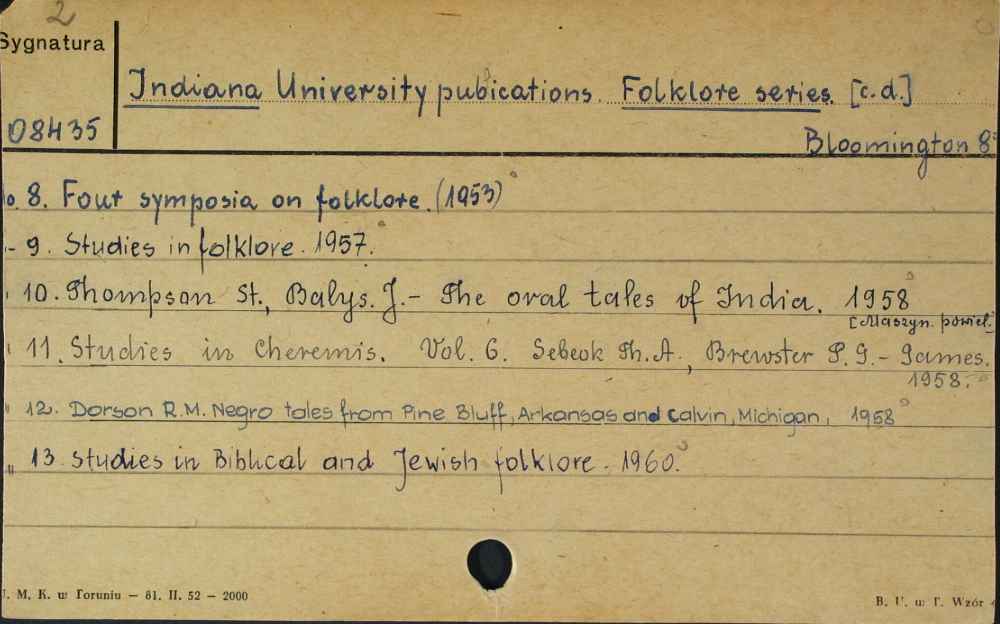 2
Sygnatura
Indiana University pubications. Folklore series. [c.d.]
08435
Bloomington 8°
No. 8. Four symposia on folklore. (1953)
- 9. Studies in folklore. 1957.
" 10. Thompson St., Balys. J. - The oral tales of India. 1958
[Maszyn. powiel.]
" 11. Studies in Cheremis. Vol. 6. Sebeok Th. A., Brewster P. G. - Games.
1958.
" 12. Dorson R.M. Negro tales from Pine Bluff, Arkansas and Calvin, Michigan, 1958
" 13 Studies in Biblical and Jewish folklore. 1960.
J. M. K. w Toruniu — 81. II. 52 — 2000
B. U. w T. Wzór